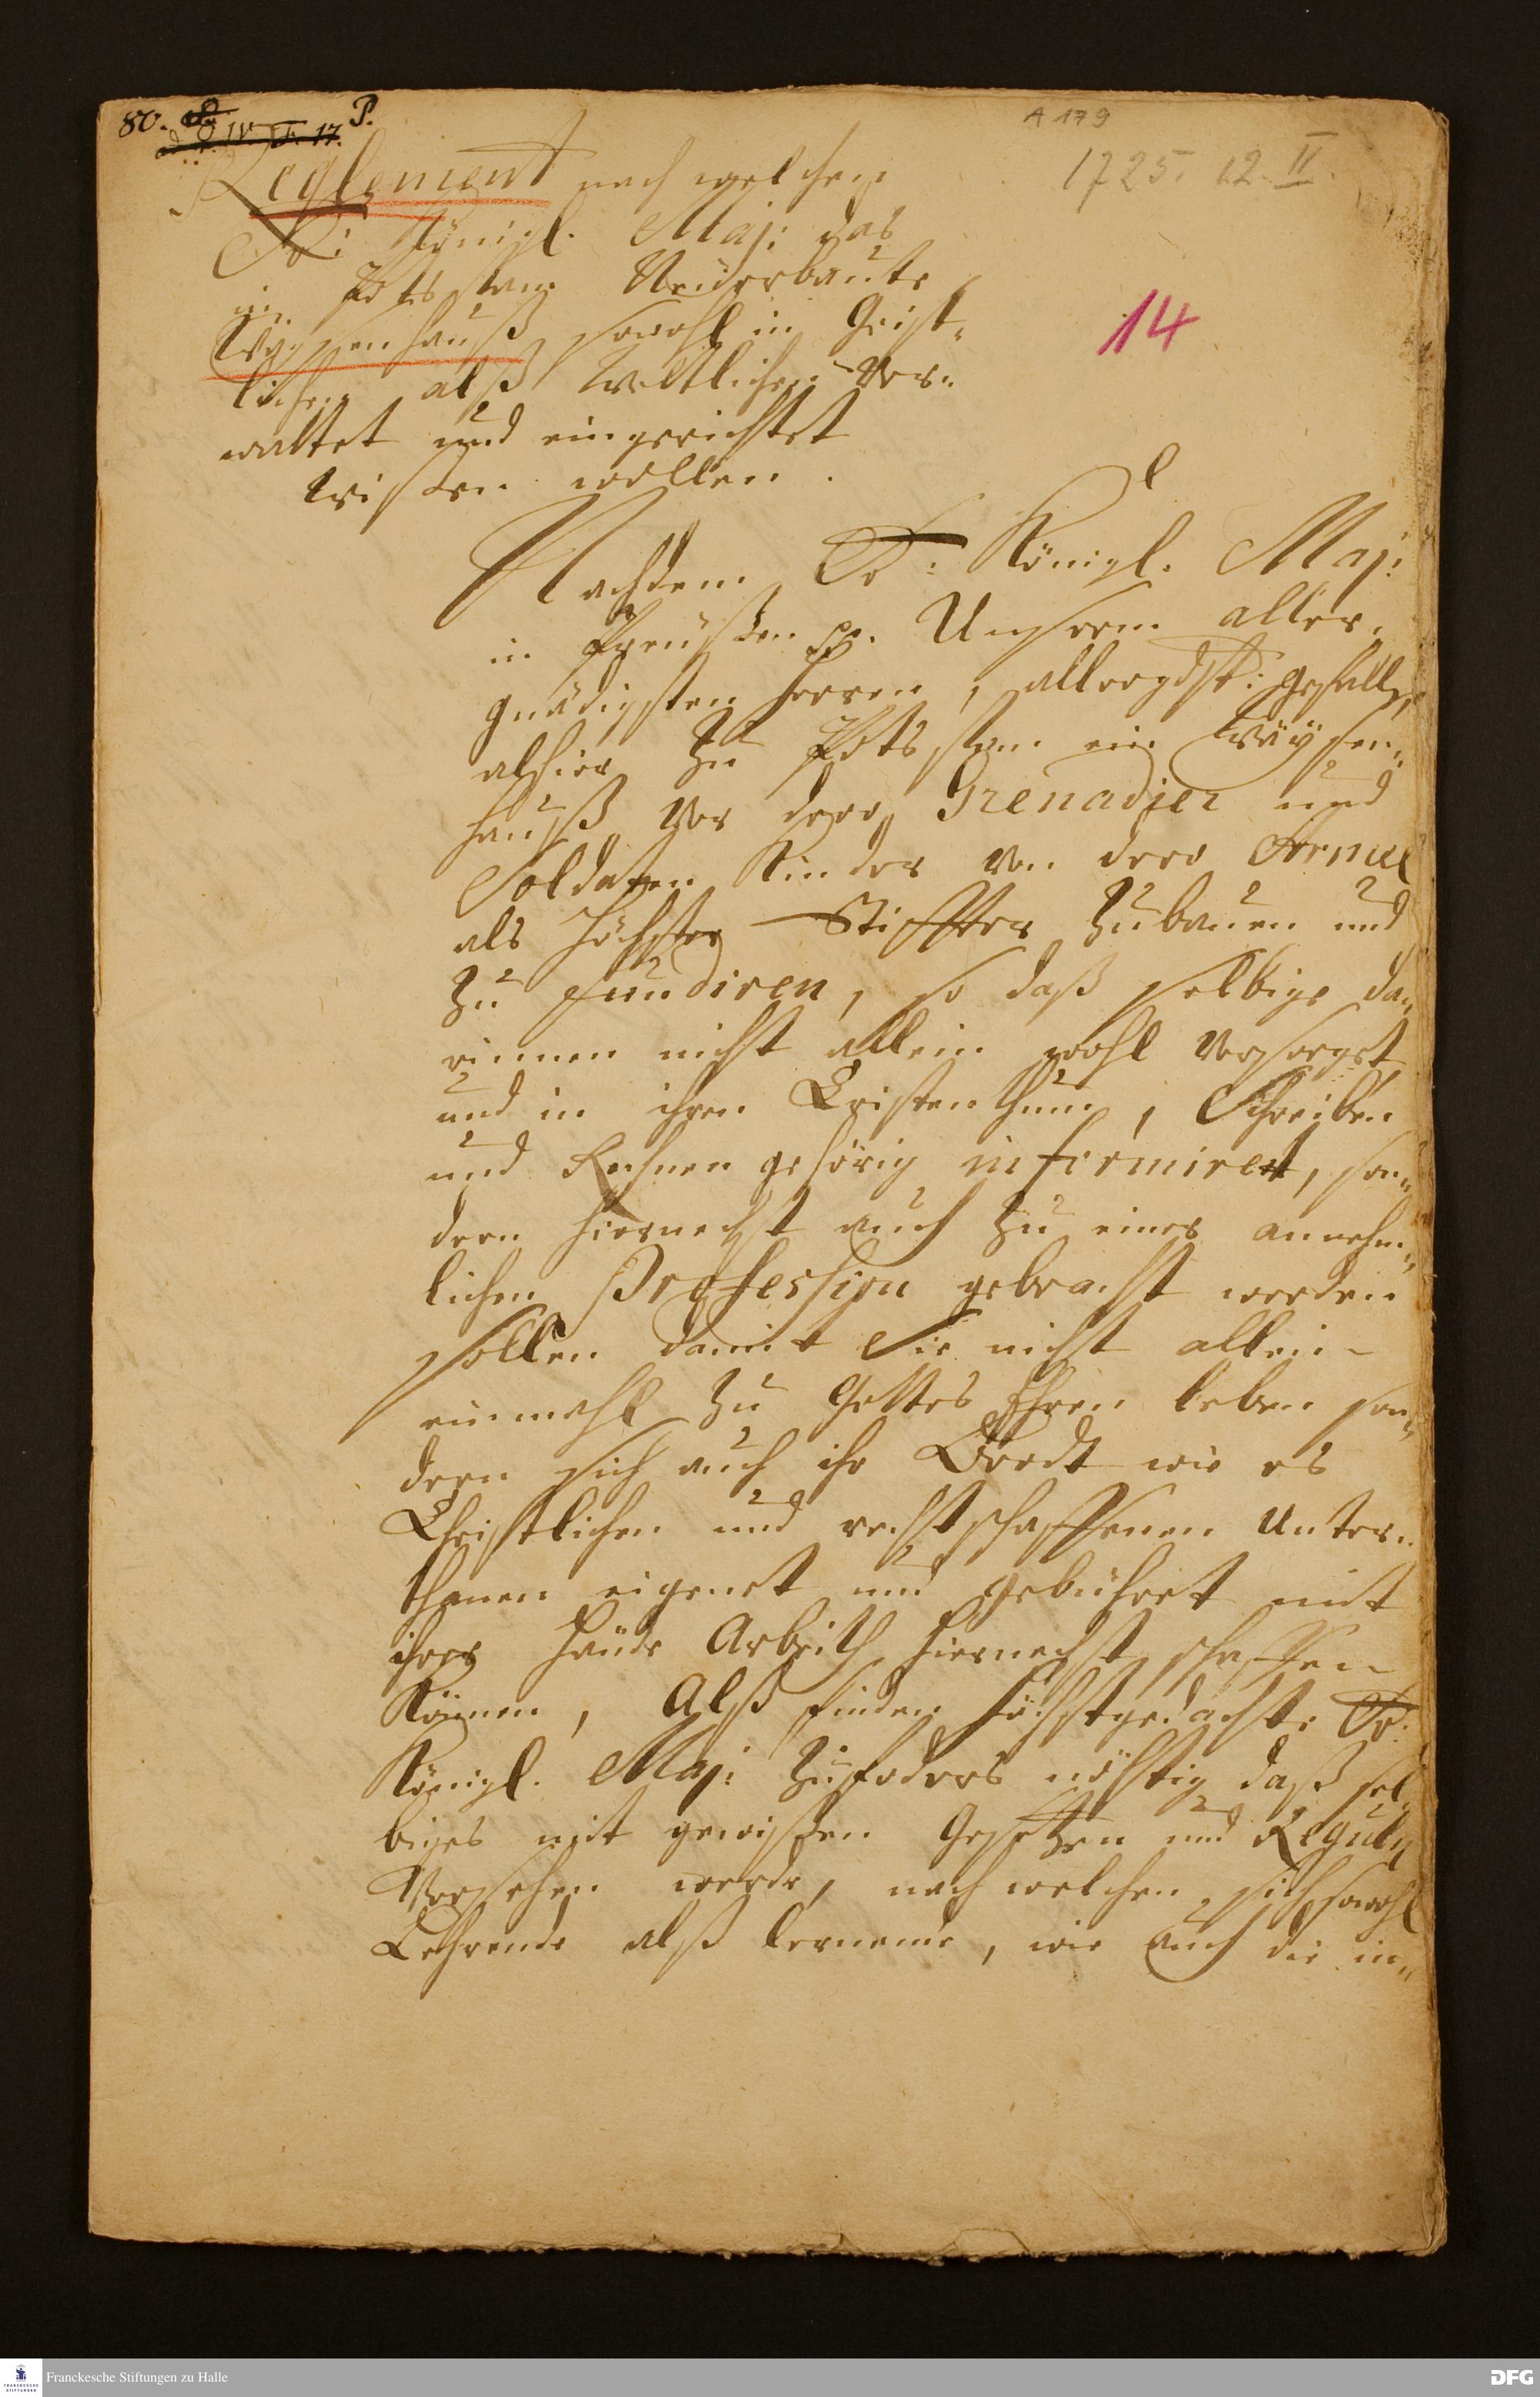 80. P.
A 179
1725. 12. II.
Reglement nach welchem
Se: Königl. Maj: das
in Potsdam Neüerbaute
Wäysenhauß sowohl in Geist-
lichen alß Weltlichen Ver-
waltet und eingerichtet
Wissen wollen.
14
Nachdem Sr: Königl. Maj:
in Preüßen p. Unserm aller-
gnädigsten Herren, allergdst: gefallen,
alhier zu Potsdam ein Wäysen-
hauß vor dero Grenadier und
Soldaten Kinder von dero Armee
als Höchster Stiffter zubauen und
zu fundiren, so daß selbige da-
rinnen nicht allein wohl versorget
und in ihren Cristenthum, Schreiben
und Rechnen gehörig informiret, son-
dern hiernechst auch zu einer annehm-
lichen Profession gebracht werden
sollen damit Sie nicht allein
einmahl zu Gottes Ehren leben son-
dern sich auch ihr Brodt wie es
Christlichen und rechtschaffenen Unter-
thanen eigenet und gebühret mit
ihrer Hände Arbeith hiernechst schaffen
Können, Alß finden höchstgedachte Sr.
Königl. Maj: zuforders nöthig daß sel-
biges mit gewißen Gesetzen und Reguln
Versehen werde, nach welchen sich sowohl
Lehrende alß lernende, wie auch die in-
Franckesche Stiftungen zu Halle
DFG